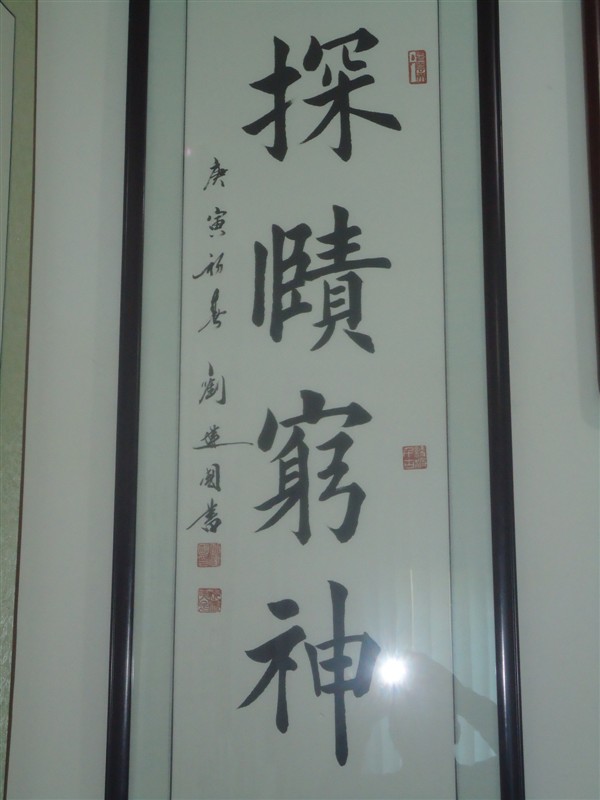 探賾窮神
庚寅初春劉 國書